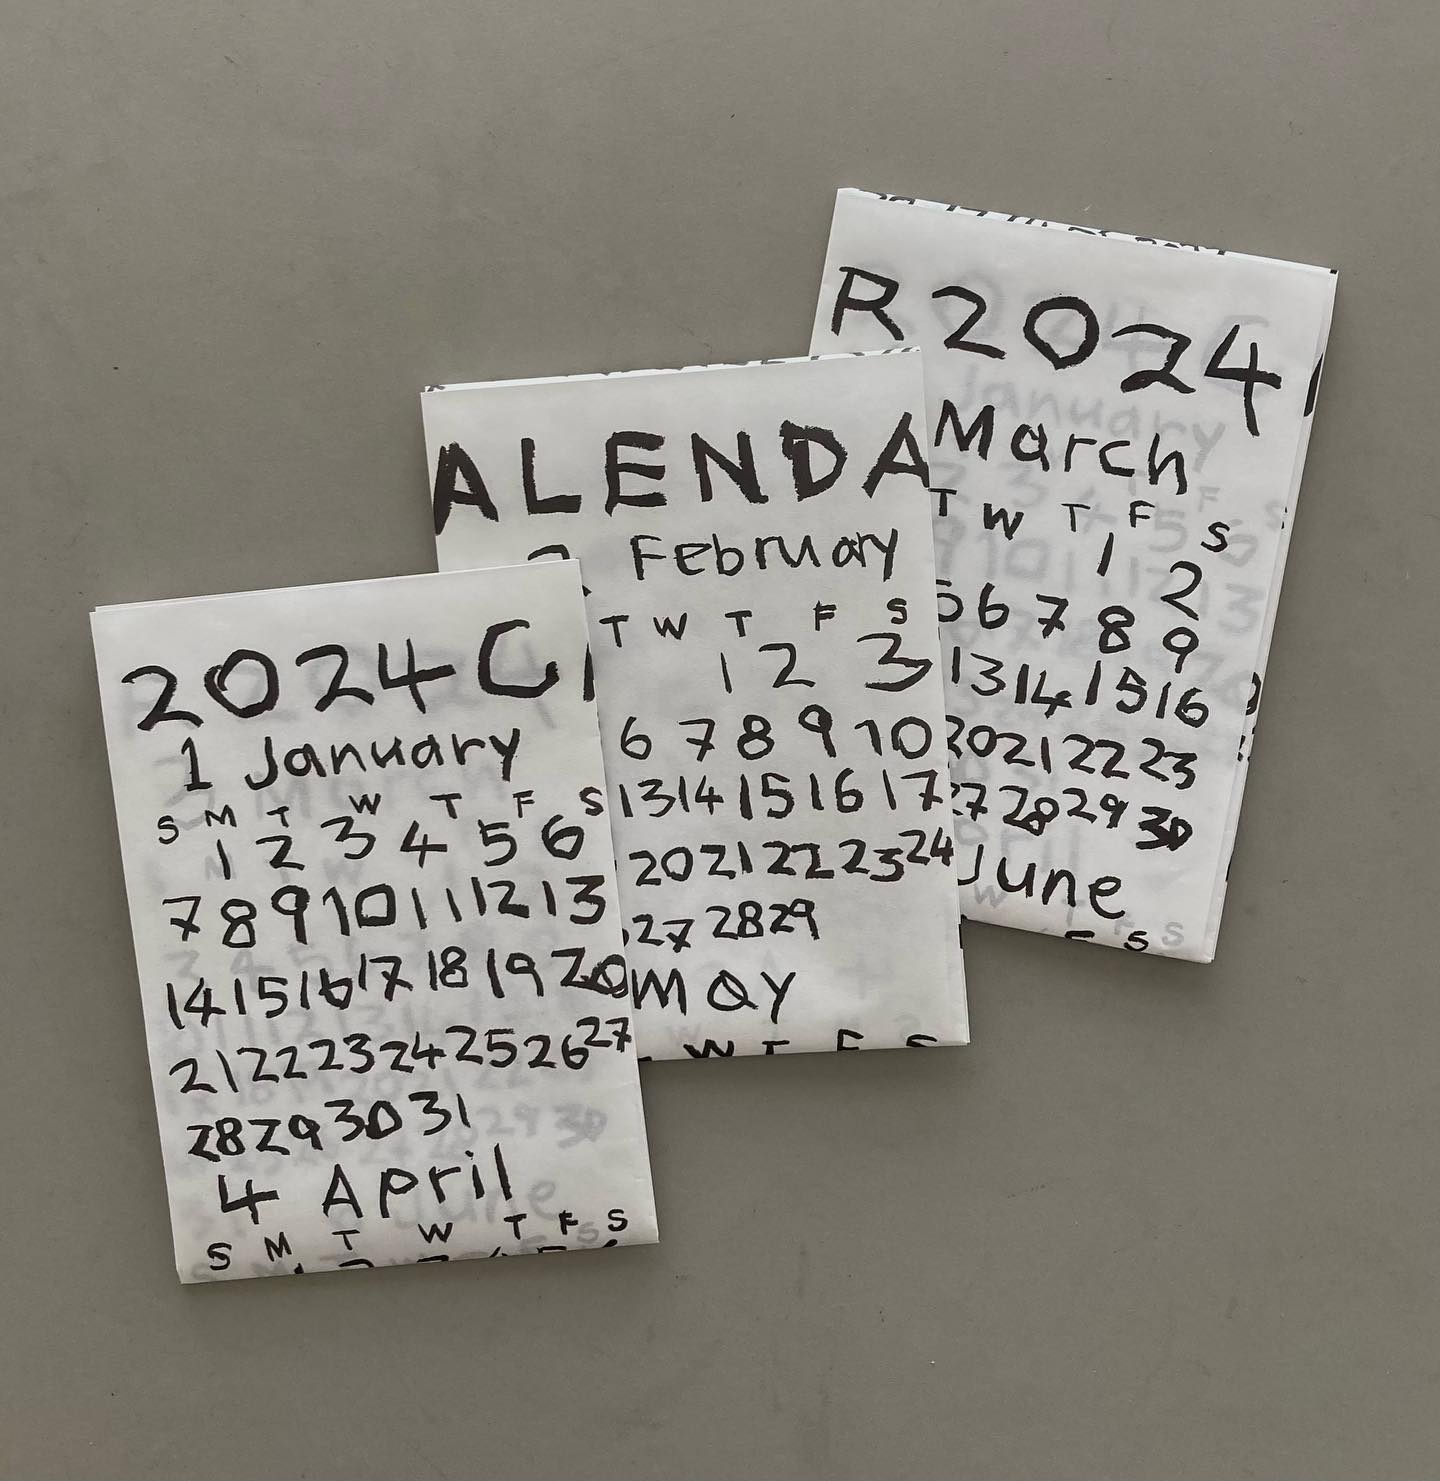 2024 C
1 January
S M T W T F S
1 2 3 4 5 6
7 8 9 10 11 12 13
14 15 16 17 18 19 20
21 22 23 24 25 26 27
28 29 30 31
4 April
S M T W T F S
ALENDA
February
T W T F S
1 2 3
6 7 8 9 10
13 14 15 16 17
20 21 22 23 24
27 28 29
May
W T F S
R 2024
March
T W T F S
1 2
6 7 8 9
13 14 15 16
20 21 22 23
27 28 29 30
June
F S